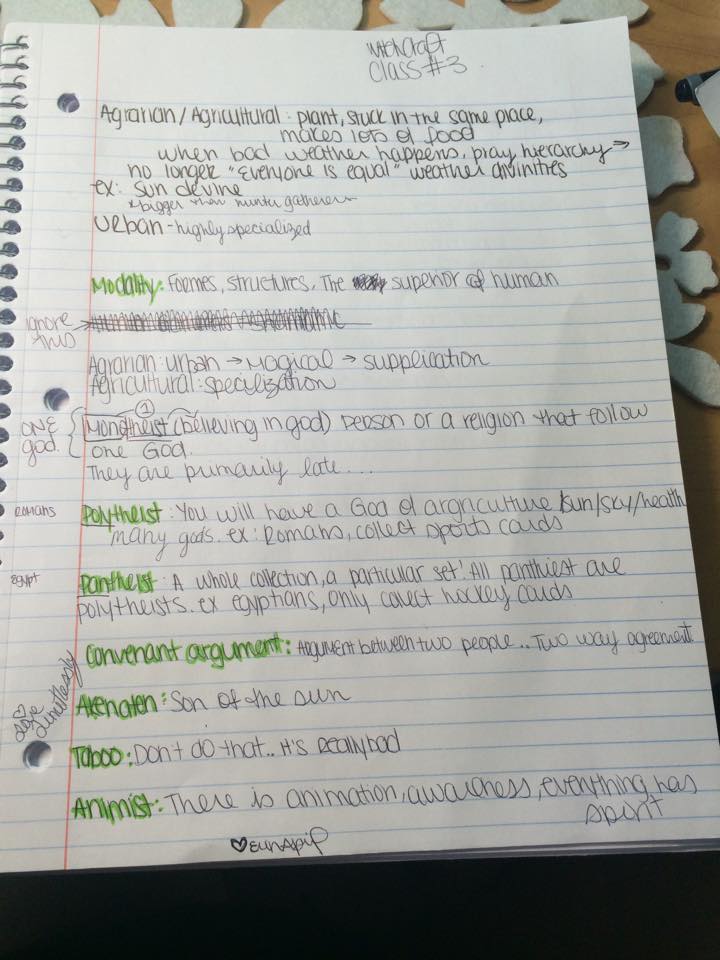 witchcraft
Class #3
Agrarian/Agricultural: plant, stuck in the same place,
makes lots of food
when bad weather happens, pray, hierarchy →
no longer "Everyone is equal" weather divinities
ex: sun devine
*bigger then hunter gatherer
Urban - highly specialized
Modality: Foemes, structures. The superior of human
ignore this →
Agrarian: urban → Magical → supplication
Agricultural: specilization
ONE god. { Monotheist (believing in god) Person or a religion that follow
① one God.
They are pumarily late...
Romans Polytheist: You will have a God of argriculture/sun/sky/health
many gods. ex: Romans, collect sports cards
Egypt Pantheist: A whole collection, a particular set! All panthiest are
polytheists. ex egyptians, only collect hockey cards
Convenant argument: Argument between two people.. Two way agreement
Akenaten: Son of the sun
Taboo: Don't do that.. it's really bad
Animist: There is animation, awareness, everything has
spirit
♡
love